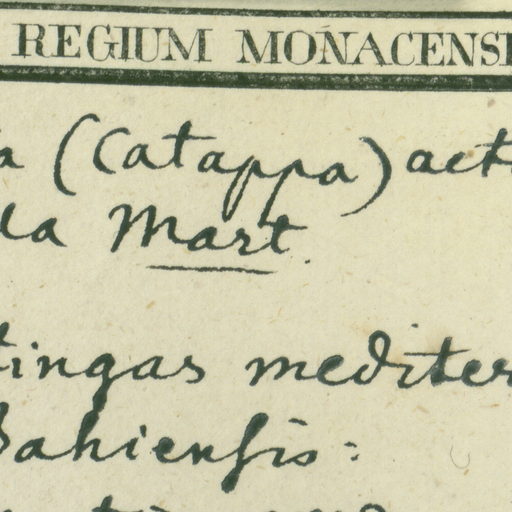 REGIUM MONACENS
a (Catappa) act
la Mart.
tingas mediter
Bahiensis: